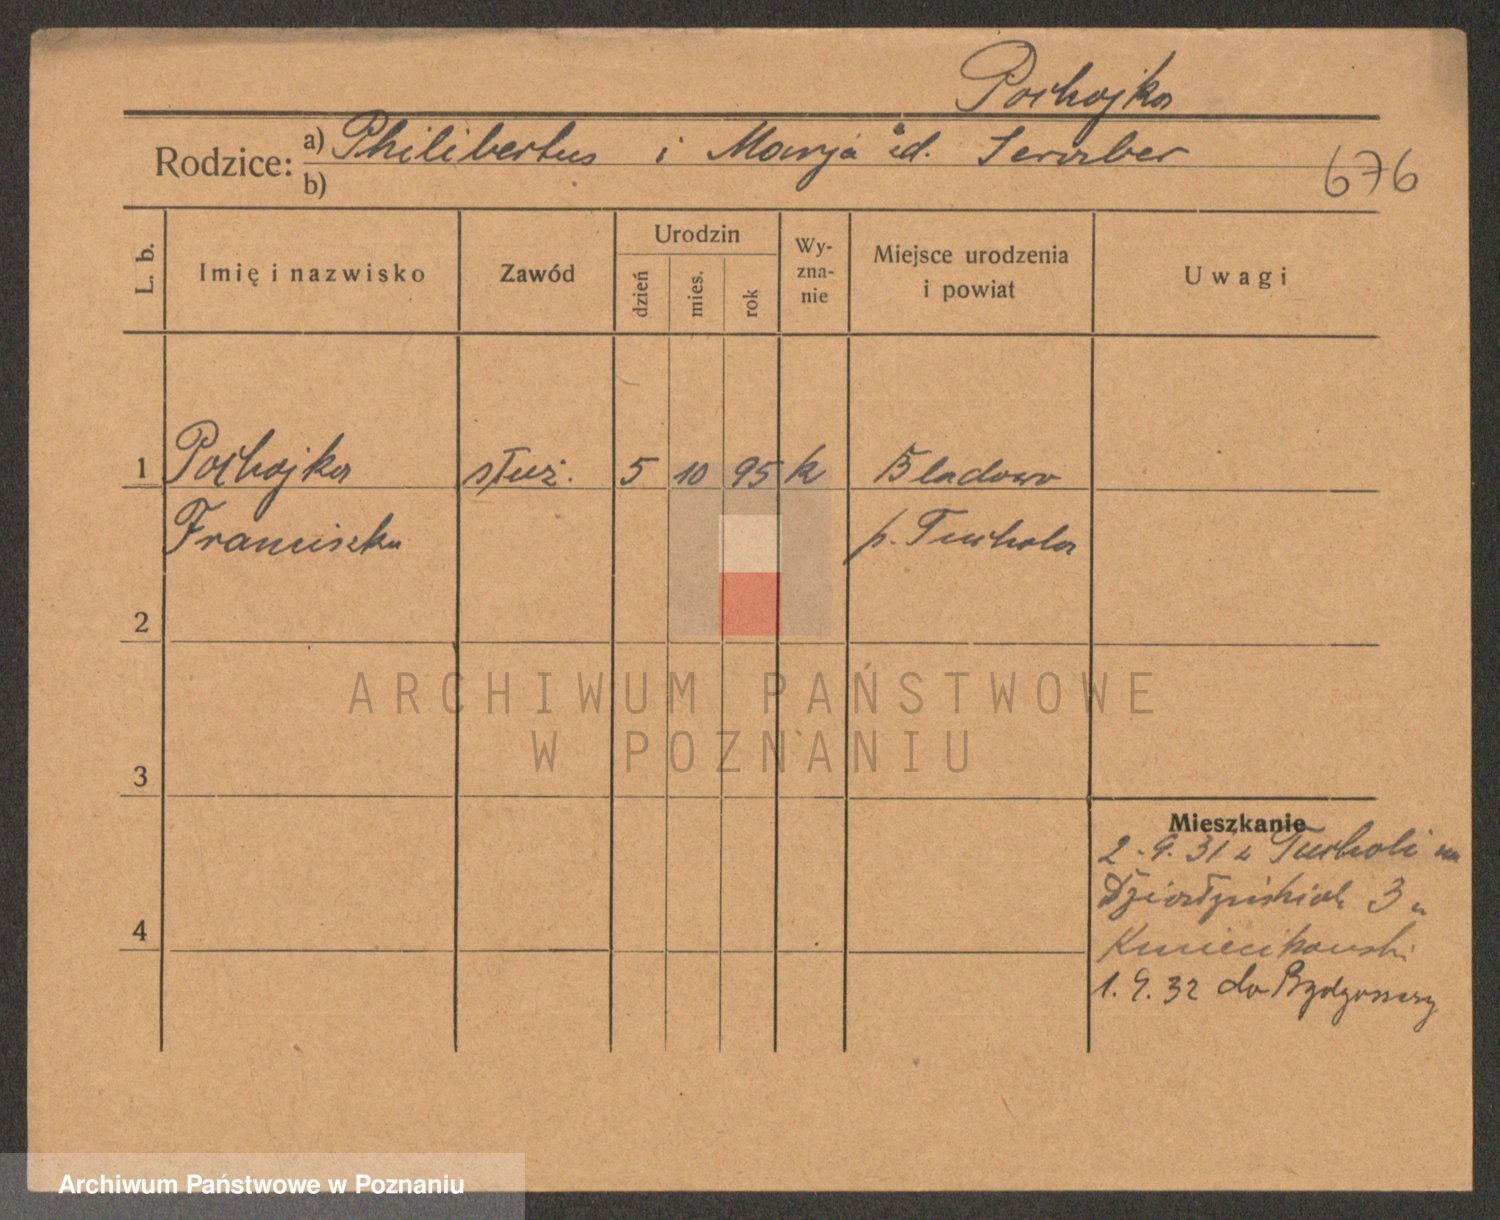 Pochojka
Rodzice: a) Philibertus i Marja
b)
676
L. b. Imię i nazwisko Zawód Urodzin dzień mies. rok Wy-zna-nie Miejsce urodzenia i powiat Uwagi
1 Pochojka służ. 5 10 95 k Bladowo
Franciszka p. Tuchola
2
3
4
Mieszkanie
2.9.31 z Tucholi na
Działyńskich 3 u
1.9.32 do Bydgoszczy
ARCHIWUM PAŃSTWOWE
W POZNANIU
Archiwum Państwowe w Poznaniu